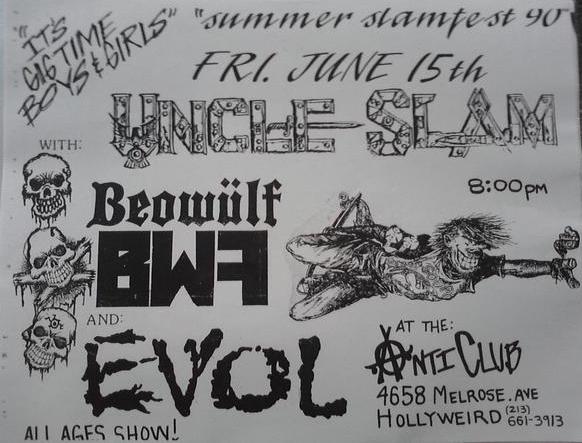 "IT'S
GIGTIME
BOYS & GIRLS"
"summer slamfest 90"
FRI. JUNE 15th
UNCLE SLAM
WITH:
8:00PM
Beowülf
BWF
AND:
EVOL
AT THE:
ANTI CLUB
4658 MELROSE.AVE
HOLLYWEIRD (213) 661-3913
ALL AGES SHOW!